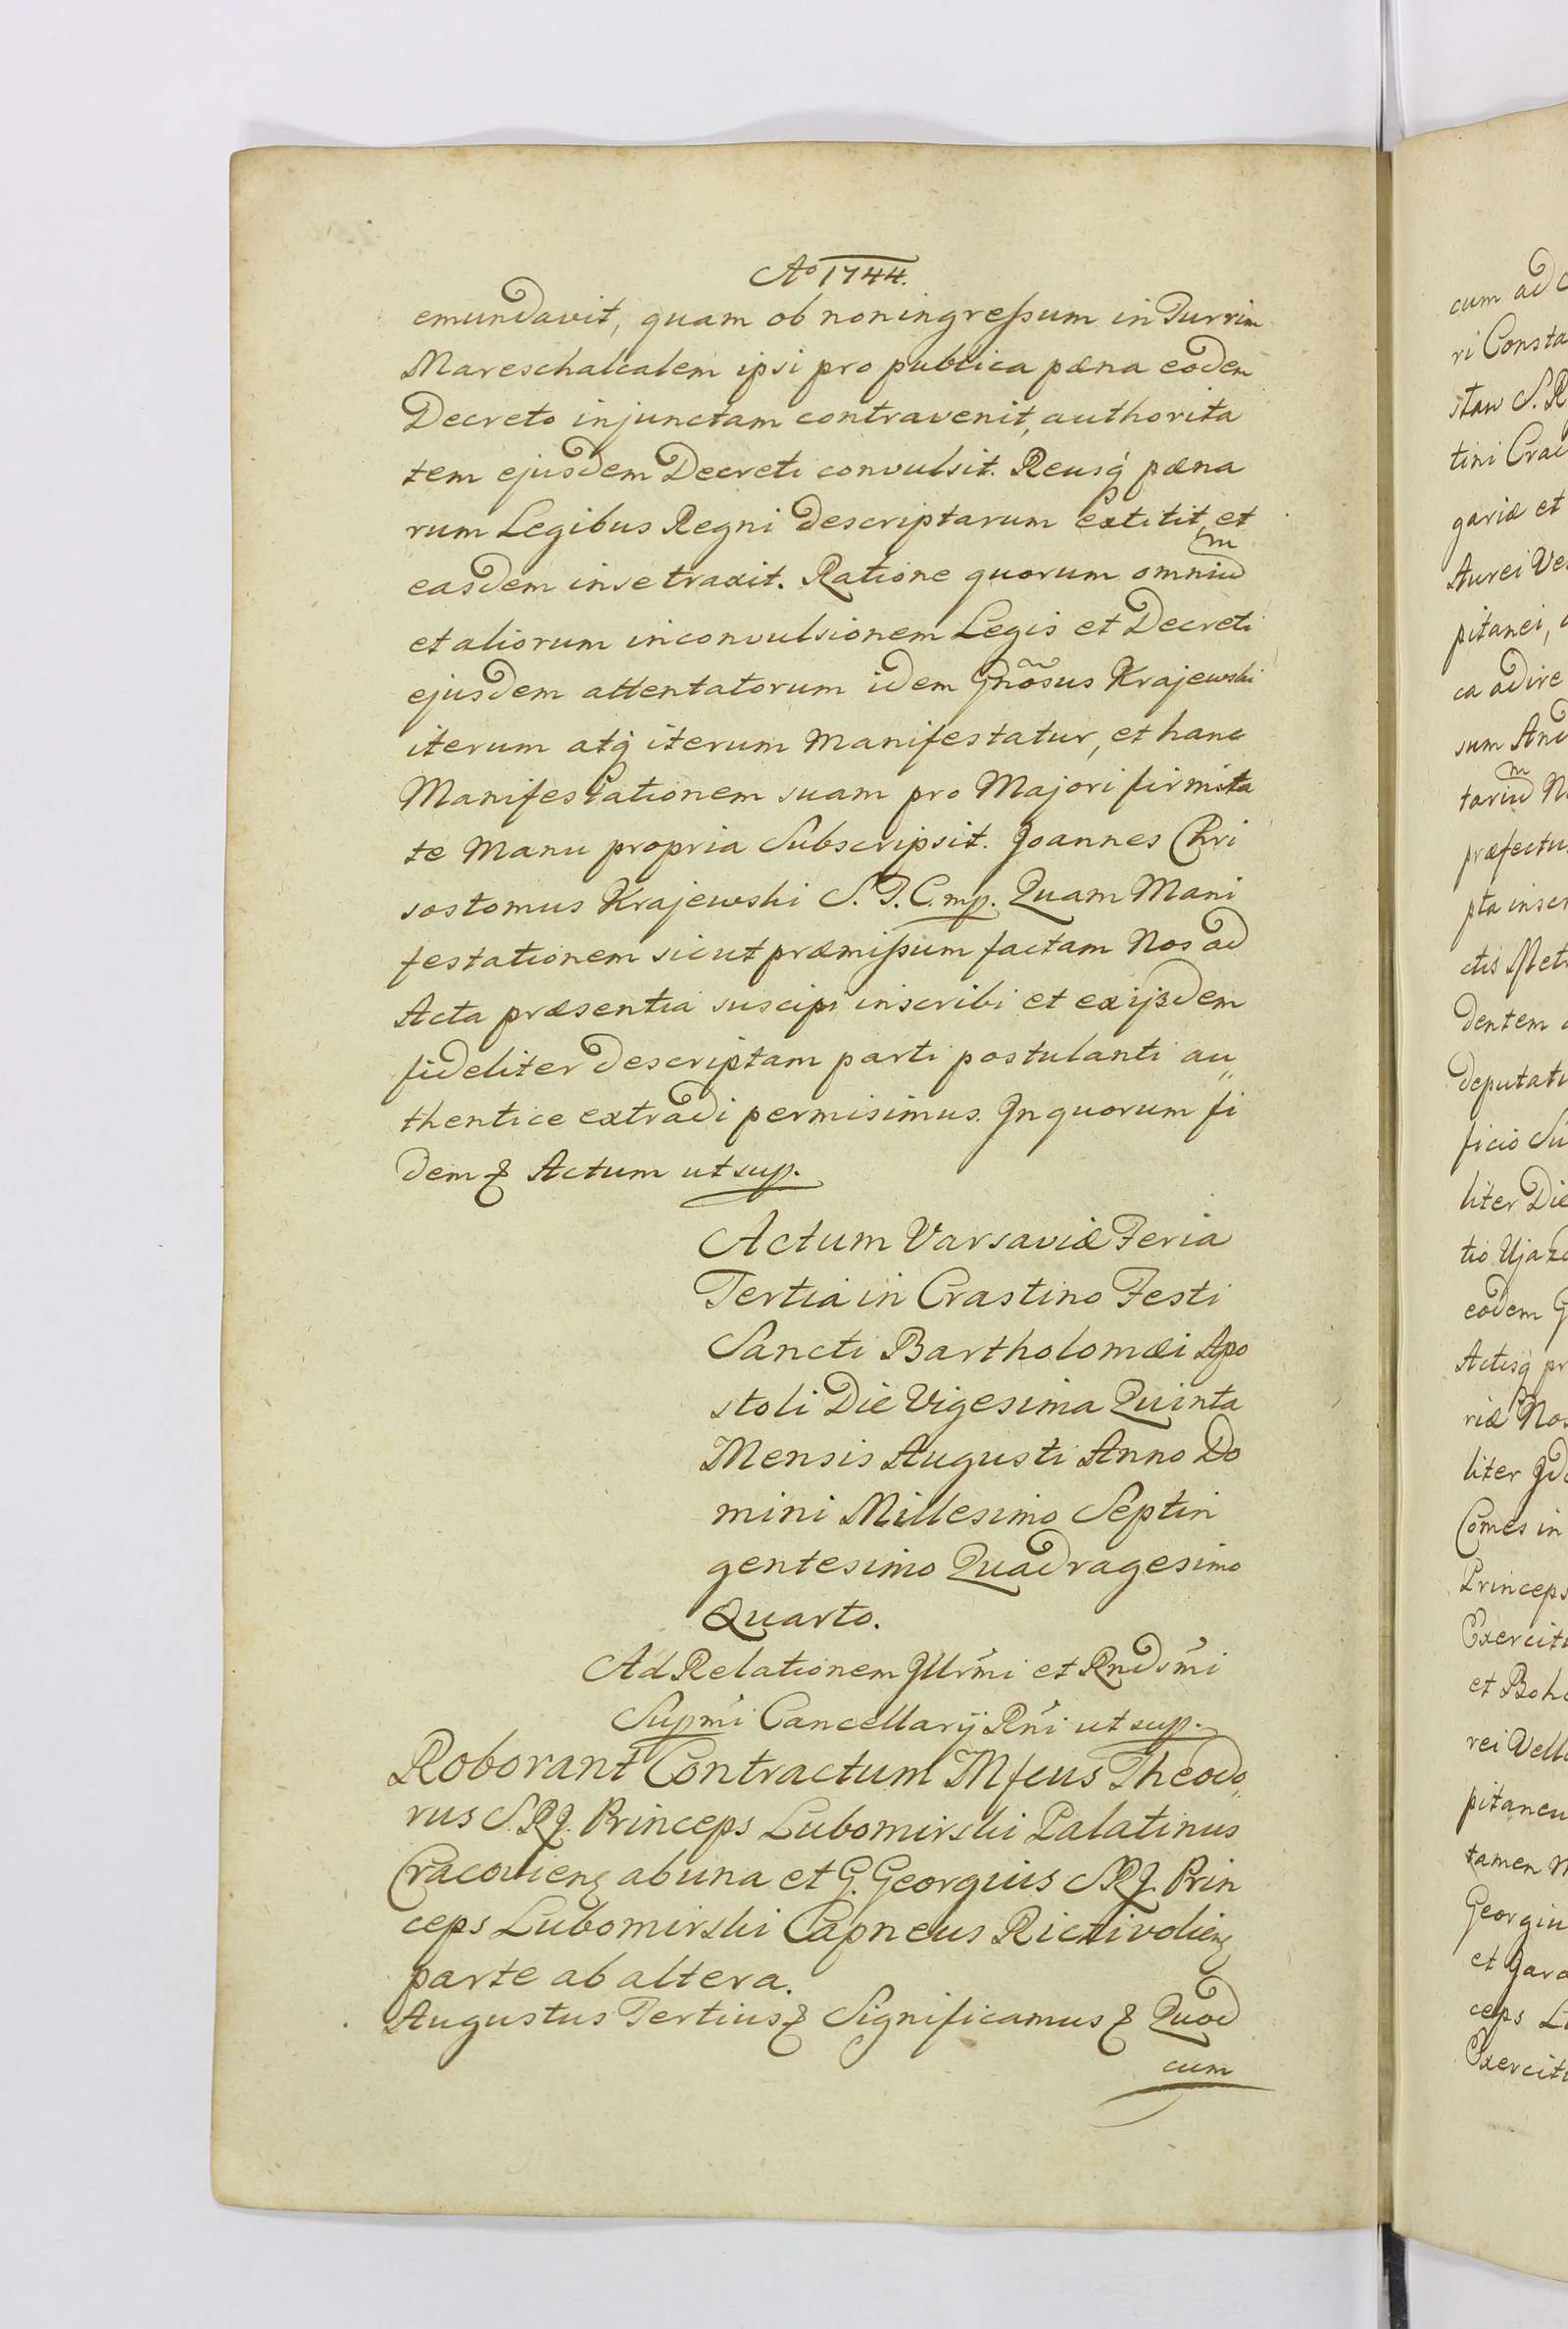 Aº 1744.
emundavit, quam ob noningreſsum in Turrim
Mareschalcalem ipsi pro publica pæna eodem
Decreto injunctam contravenit, authorita
tem ejusdem Decreti convulsit. Reusq́ pæna
rum Legibus Regni descriptarum extitit, et
easdem in se traxit. Ratione quorum omniũ
et aliorum in convulsionem Legis et Decreti
ejusdem attentatorum idem Gnõsus Krajewski
iterum atq́ iterum Manifestatur, et hanc
Manifestationem suam pro Majori firmita
te Manu propria Subscripsit. Joannes Chri
sostomus Krajewski S. T. C. mp. Quam Mani
festationem sicut præmiſsum factam Nos ad
Acta præsentia suscipi inscribi et ex ijsdem
fideliter descriptam parti postulanti au„
thentice extradi permisimus. In quorum fi
dem & Actum ut sup.
Actum Varsaviæ Feria
Tertia in Crastino Festi
Sancti Bartholomæi Apo
stoli Die Vigesima Quinta
Mensis Augusti Anno Do
mini Millesimo Septin
gentesimo Quadragesimo
Quarto.
Ad Relationem Illrm̃i et Rndsm̃i
Supm̃i Cancellarij Rñi ut sup.
Roborant Contractum Mfcus Theodo„
rus S.R.J. Princeps Lubomirski Palatinus
Cracovienꝫ ab una et G. Georgius S.R.J. Prin
ceps Lubomirski Capneus Rictivolienꝫ
parte ab altera.
Augustus Tertius & Significamus & Quod
cum
cum ad
ri Consta
stan S. R
tini Crac
gariæ et
Aurei Ve
pitanei,
ca adire
sum And
tariũ N
præfectu
pta inscr
ctis Metr
dentem
deputati
ficio Su
liter Die
tio Ujazd
eodem G
Actisq́ pr
riæ Nos
liter Id
Comes in
Princeps
Exercitu
et Bohe
rei Vell
pitaneu
tamen
Georgiu
et Jaro
ceps L
Exercit